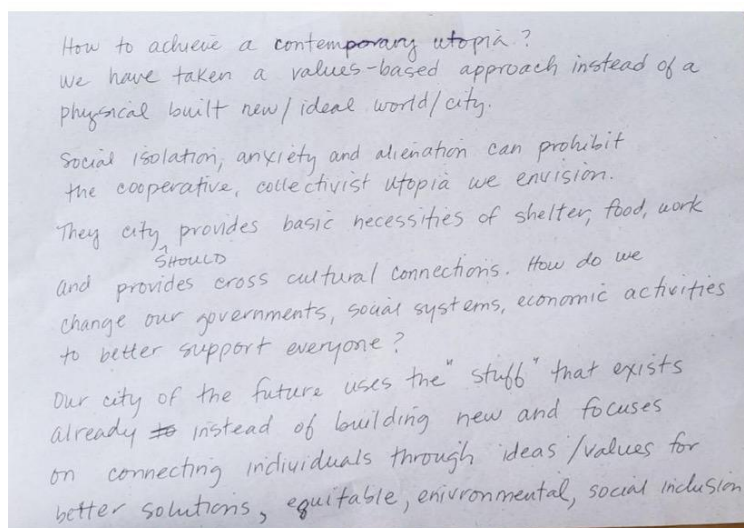 How to achieve a contemporary utopia?
We have taken a values-based approach instead of a
physical built new/ideal world/city.
Social isolation, anxiety and alienation can prohibit
the cooperative, collectivist utopia we envision.
They city provides basic necessities of shelter, food, work
SHOULD
and provides cross cultural connections. How do we
change our governments, social systems, economic activities
to better support everyone?
Our city of the future uses the "stuff" that exists
already to instead of building new and focuses
on connecting individuals through ideas/values for
better solutions, equitable, enivronmental, social inclusion